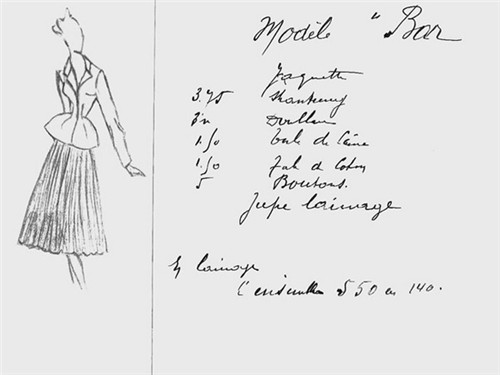 Modèle "Bar
Jaquette
3.75 Shantung
3m
1.50 Toile de
1.50 de Coton
5 Boutons.
Jupe lainage
lainage
L'ensemble 550 en 140.